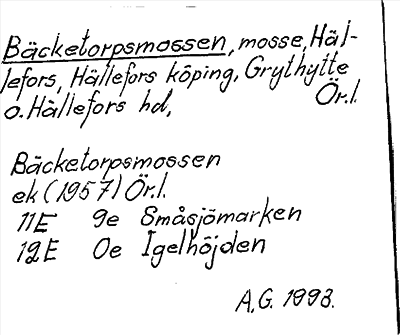 Bäcketorpsmossen, mosse, Häl-
lefors, Hällefors köping, Grythytte
o. Hällefors hd, Ör.l.
Bäcketorpsmossen
ek (1957) Ör.l.
11E 9e Småsjömarken
12E 0e Igelhöjden
A.G. 1993.